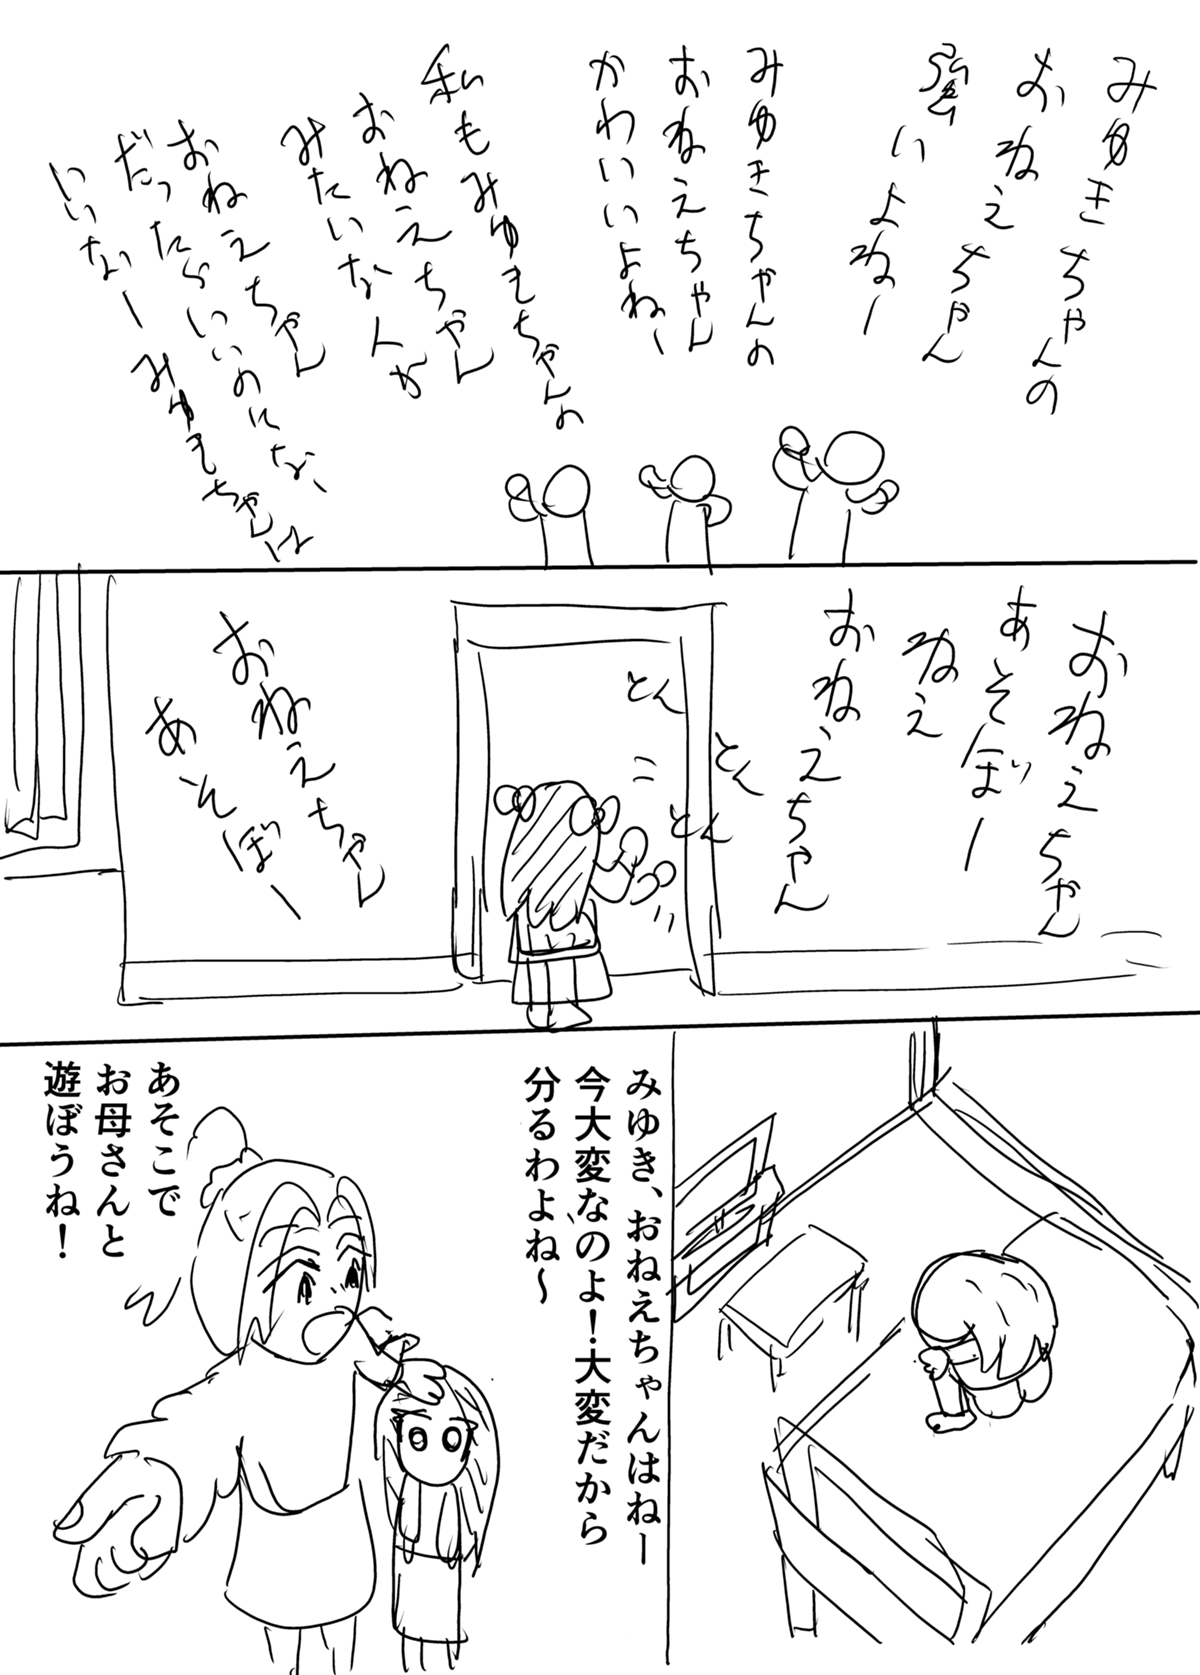 みゆきちゃんの
おねえちゃん
強いよねー
みゆきちゃんの
おねえちゃん
かわいいよねー
私もみゆきちゃんの
おねえちゃん
みたいなんが
おねえちゃん
だったらいいのにな、
いいなーみゆきちゃんは
おねえちゃん
あそぼー
ねえ
おねえちゃん
とん
とん
とん
おねえちゃん
あそぼー
みゆき、おねえちゃんはねー
今大変なのよ！大変だから
分るわよね〜
あそこで
お母さんと
遊ぼうね！